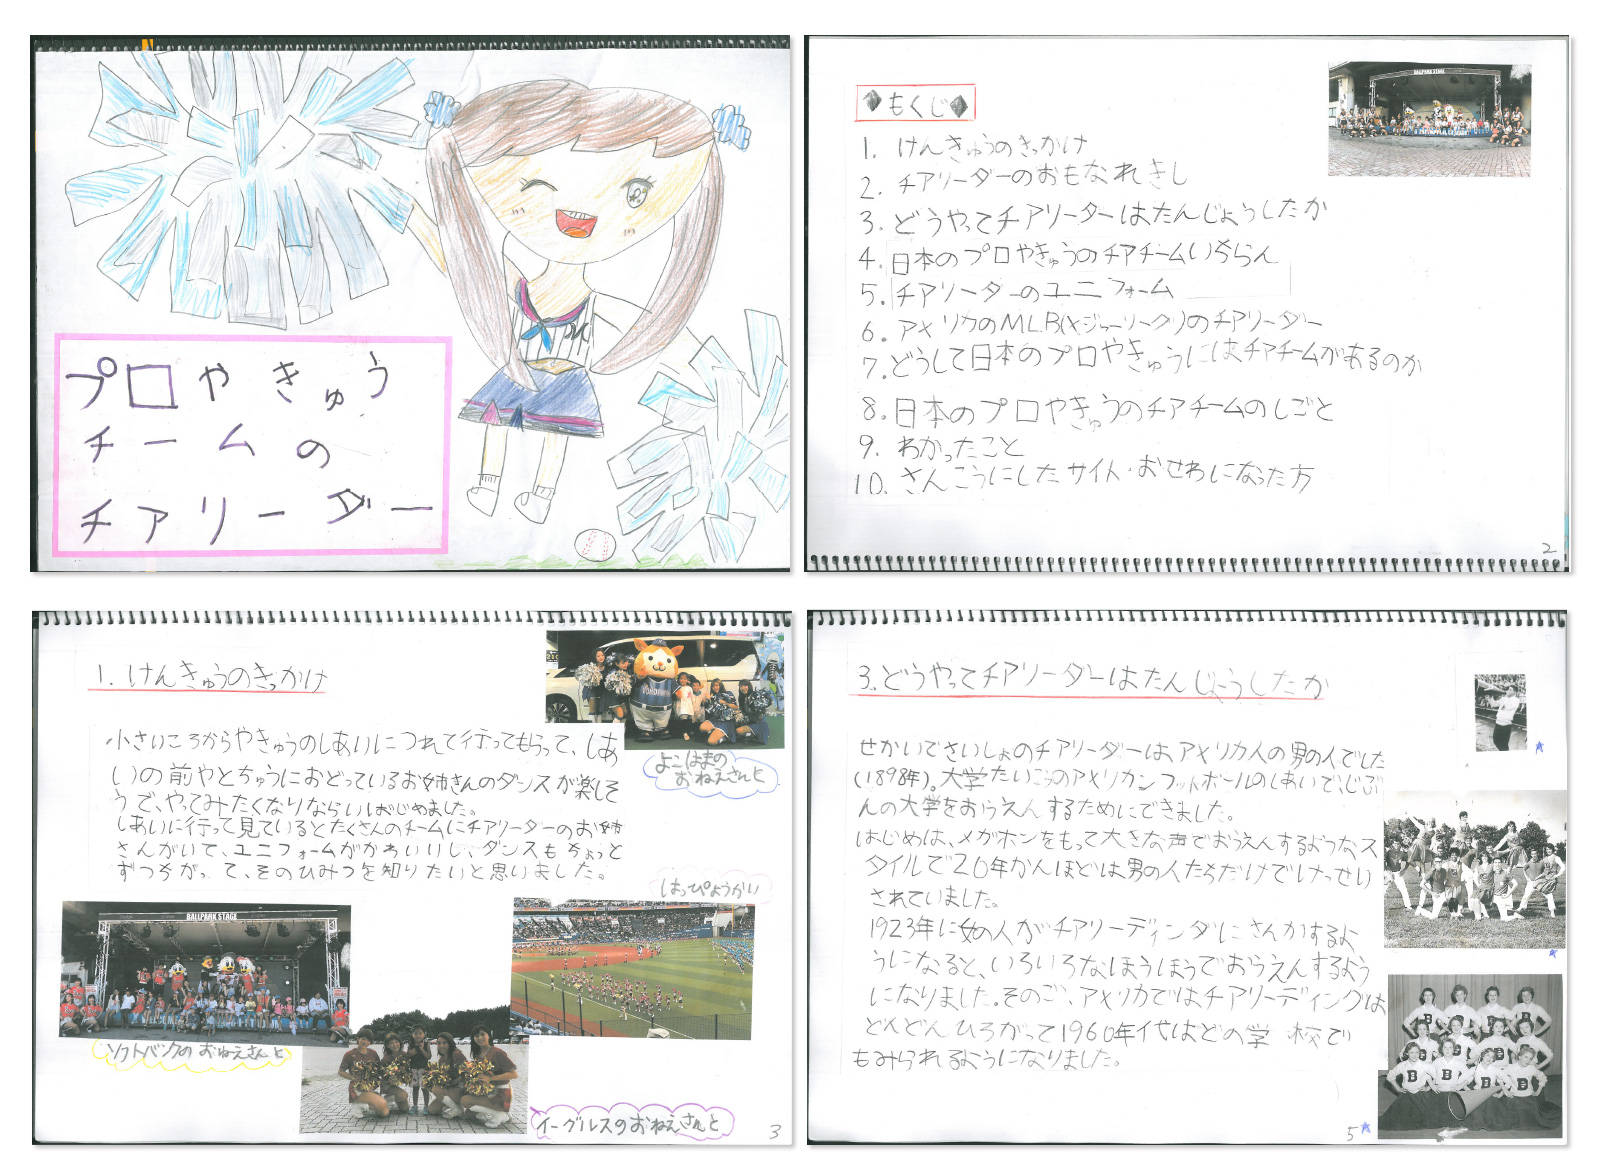 プロやきゅう
チームの
チアリーダー
◆もくじ◆
1. けんきゅうのきっかけ
2. チアリーダーのおもなれきし
3. どうやってチアリーダーはたんじょうしたか
4. 日本のプロやきゅうのチアチームいちらん
5. チアリーダーのユニフォーム
6. アメリカのMLB(メジャーリーグ)のチアリーダー
7. どうして日本のプロやきゅうにはチアチームがあるのか
8. 日本のプロやきゅうのチアチームのしごと
9. わかったこと
10. さんこうにしたサイト・おせわになった方
BALLPARK STAGE
2
1. けんきゅうのきっかけ
小さいころからやきゅうのしあいにつれて行ってもらって、しあ
いの前やとちゅうにおどっているお姉さんのダンスが楽しそ
うで、やってみたくなりならいはじめました。
しあいに行って見ているとたくさんのチームにチアリーダーのお姉
さんがいて、ユニフォームがかわいいし、ダンスもちょっと
ずつちがって、そのひみつを知りたいと思いました。
よこはまの
おねえさんと
はっぴょうかい
BALLPARK STAGE
ソフトバンクのおねえさんと
イーグルスのおねえさんと
3
3. どうやってチアリーダーはたんじょうしたか
せかいでさいしょのチアリーダーは、アメリカ人の男の人でした
(1898年)。大学たいこうのアメリカンフットボールのしあいで、じぶ
んの大学をおうえんするためにできました。
はじめは、メガホンをもって大きな声でおうえんするようなス
タイルで20年かんほどは男の人たちだけでけっせい
されていました。
1923年に女の人がチアリーディングにさんかするよ
うになると、いろいろなほうほうでおうえんするよう
になりました。そのご、アメリカではチアリーディングは
どんどんひろがって1960年代はどの学校で
もみられるようになりました。
B B B B
5